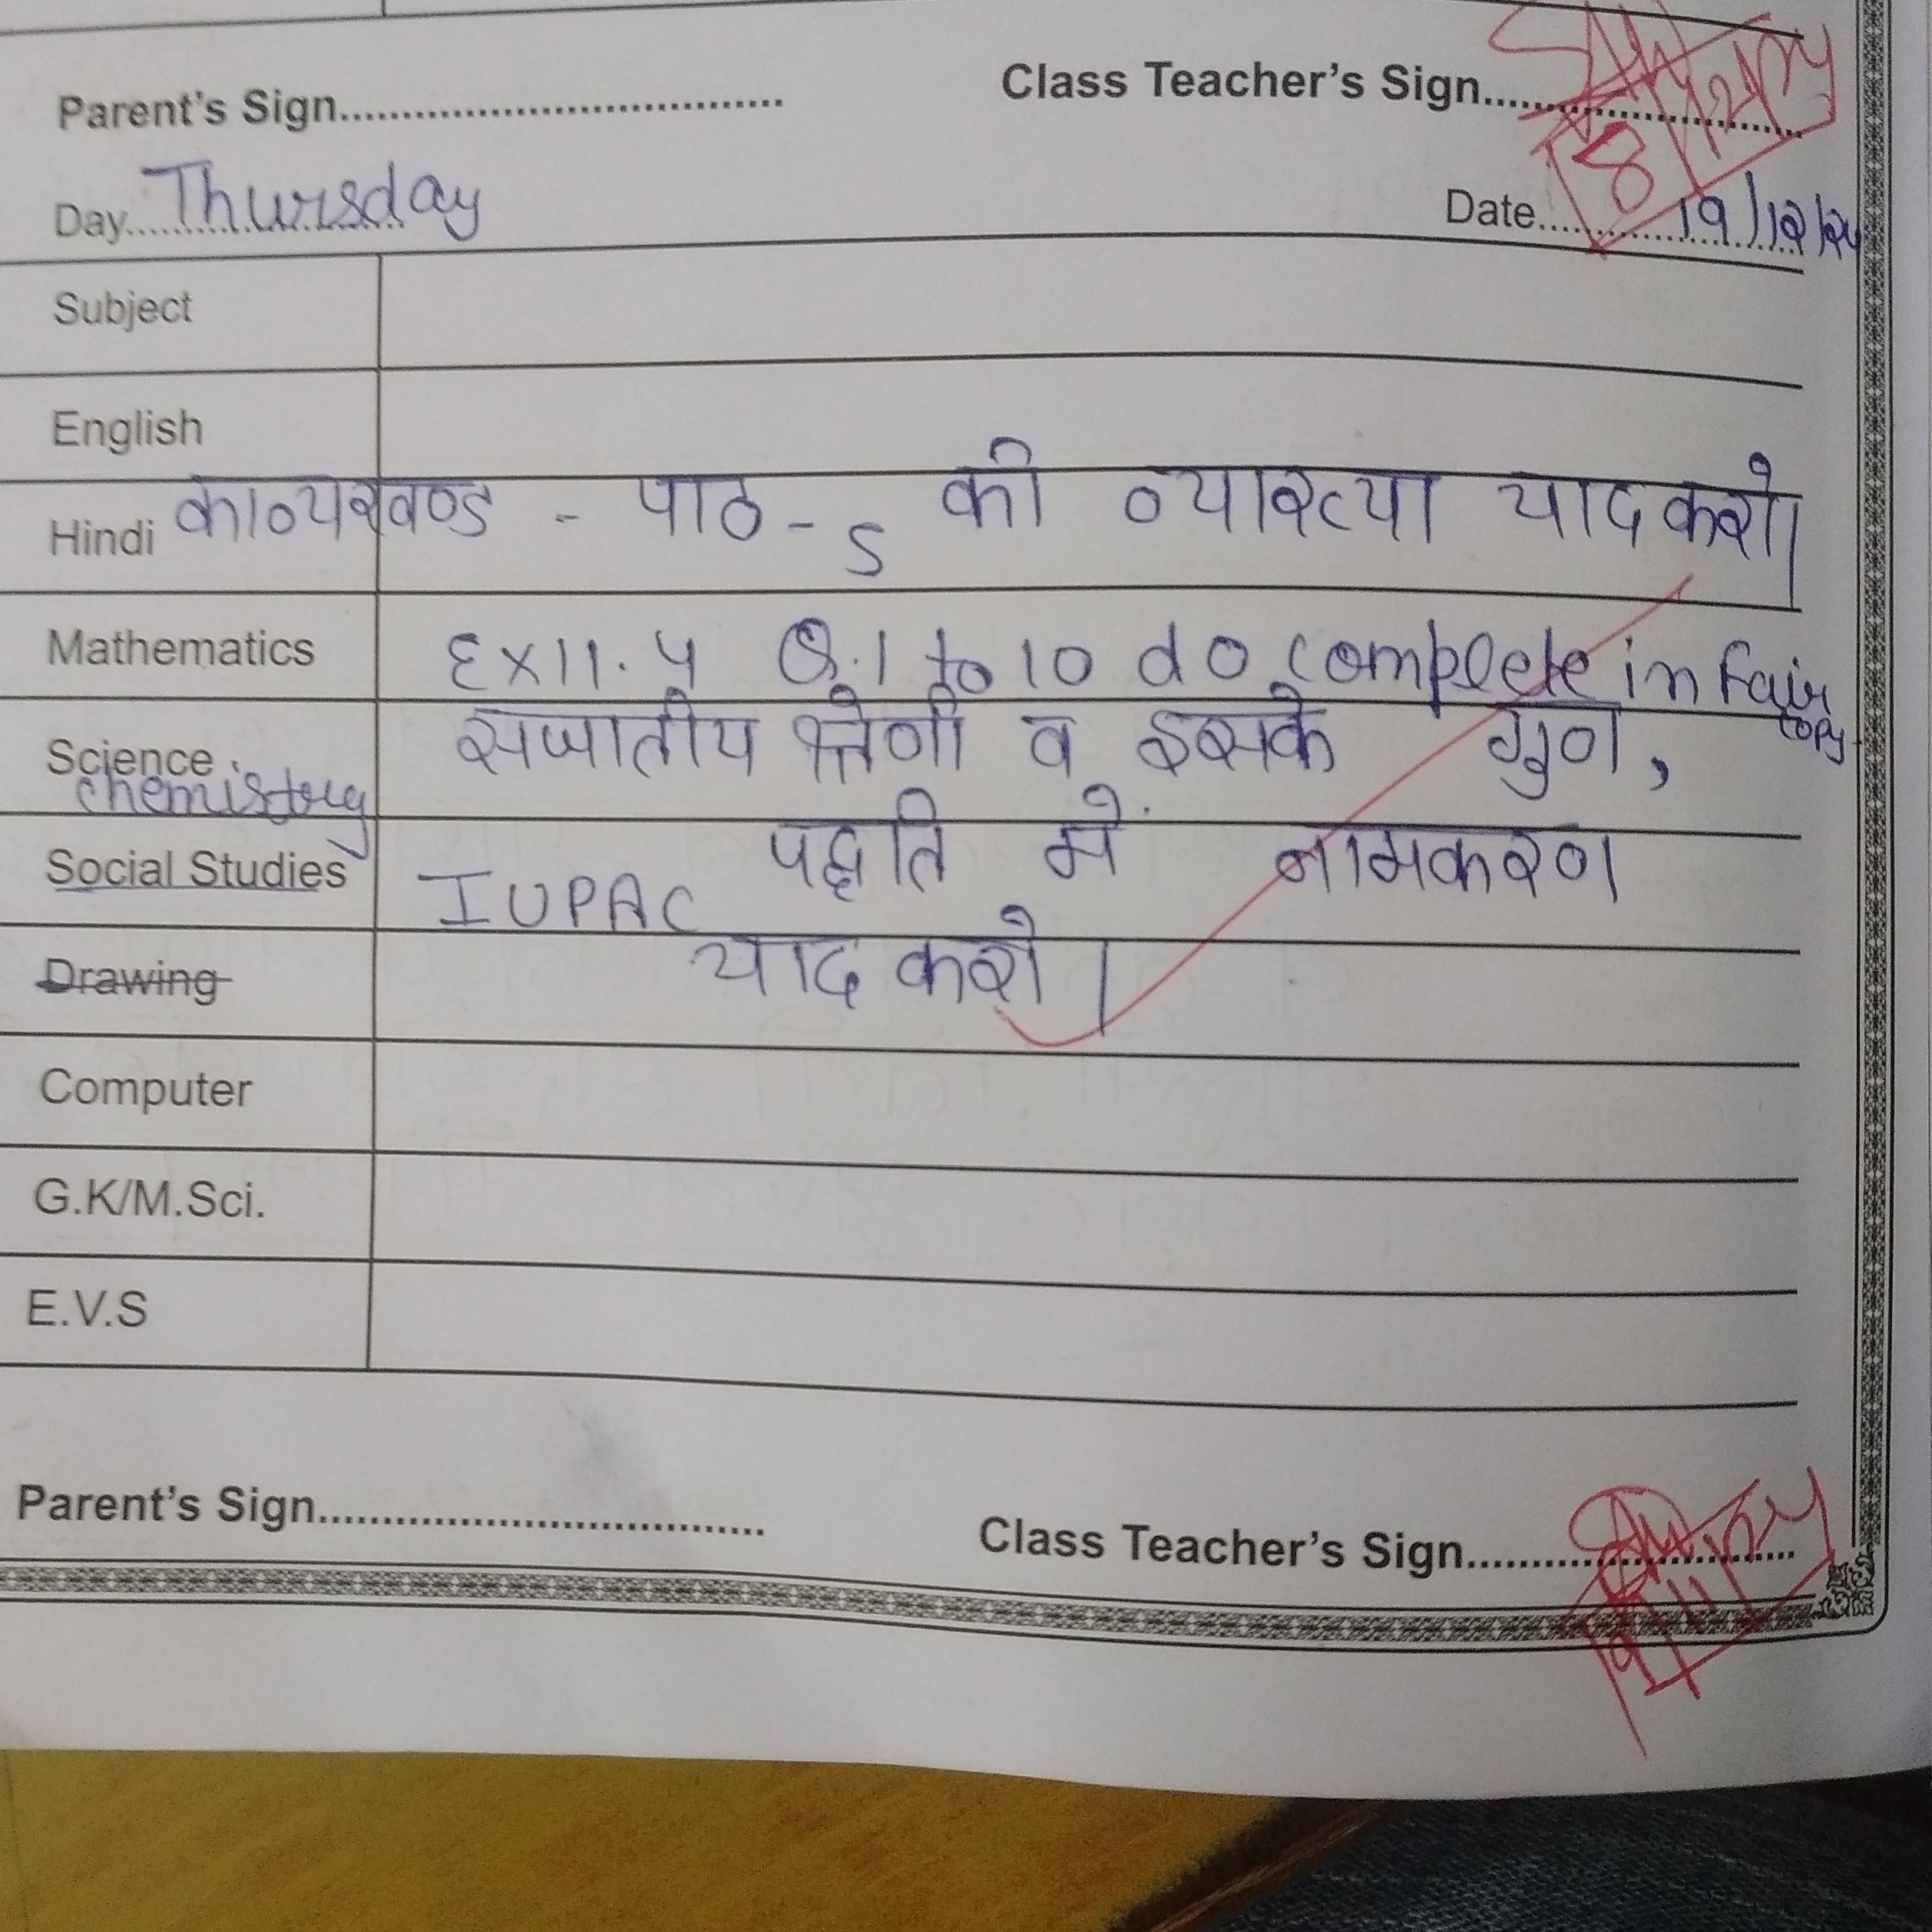 Parent's Sign.................................. Class Teacher's Sign......................
Day.....Thursday Date.......19/12/24
8
Subject
English
Hindi काव्यखण्ड - पाठ-5 की व्याख्या याद करो।
Mathematics Ex 11.4 Q.1 to 10 do complete in fair copy.
Science सजातीय श्रेणी व इसके गुण,
chemistry
Social Studies IUPAC पद्धति में नामकरण
Drawing याद करो।
Computer
G.K/M.Sci.
E.V.S
Parent's Sign.................................. Class Teacher's Sign..........................